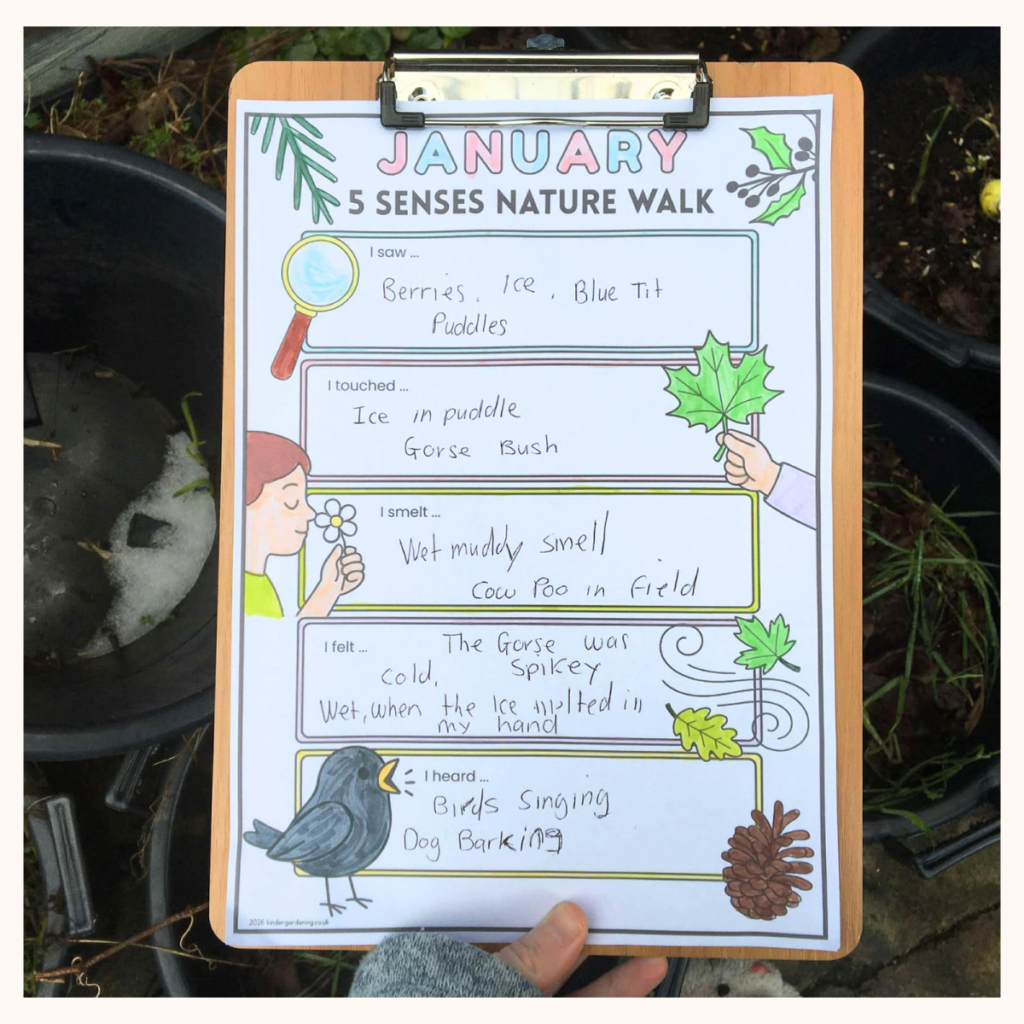 JANUARY
5 SENSES NATURE WALK
I saw ...
Berries. Ice. Blue Tit
Puddles
I touched ...
Ice in puddle
Gorse Bush
I smelt ...
Wet muddy smell
Cow Poo in field
I felt ... The Gorse was
cold, Spikey
Wet, when the Ice melted in
my hand
I heard ...
Birds Singing
Dog Barking
2026 kindergardening.co.uk